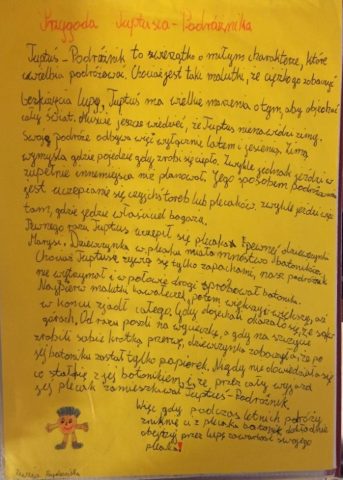 Przygoda Tuptusia-Podróżnika
Tuptuś - Podróżnik to zwierzątko o miłym charakterze, które
uwielbia podróżować. Chociaż jest taki malutki, że ciężko go zobaczyć
bez użycia lupy, Tuptuś ma wielkie marzenia o tym, aby objechać
cały świat. Musicie jeszcze wiedzieć, że Tuptuś nienawidzi zimy.
Swoje podróże odbywa więc wyłącznie latem i jesienią. Zimą
wymyśla gdzie pojedzie gdy zrobi się ciepło. Zwykle jednak jeździ w
zupełnie inne miejsca niż planował. Jego sposobem podróżowania
jest uczepianie się czyjichś toreb lub plecaków, zwykle jeździ więc
tam, gdzie jedzie właściciel bagażu.
Pewnego razu Tuptuś uczepił się plecaka pewnej dziewczynki
Marysi. Dziewczynka w plecaku miała mnóstwo batoników.
Chociaż Tuptusie żywią się tylko zapachami, nasz podróżnik
nie wytrzymał i w połowie drogi spróbował batonika.
Najpierw malutki kawałeczek, potem większy i większy, aż
w końcu zjadł całego. Gdy dojechali okazało się, że są w
górach. Od razu poszli na wycieczkę, a gdy na szczycie
zrobili sobie krótką przerwę, dziewczynka zobaczyła, że po
jej batoniku został tylko papierek. Nigdy nie dowiedziała się
co stało się z jej batonikiem i że przez cały wyjazd
jej plecak zamieszkiwał Tuptuś-Podróżnik.
Więc gdy podczas letnich podróży
zniknie ci z plecaka batonik dokładnie
obejrzyj przez lupę zawartość swojego
plecaka!